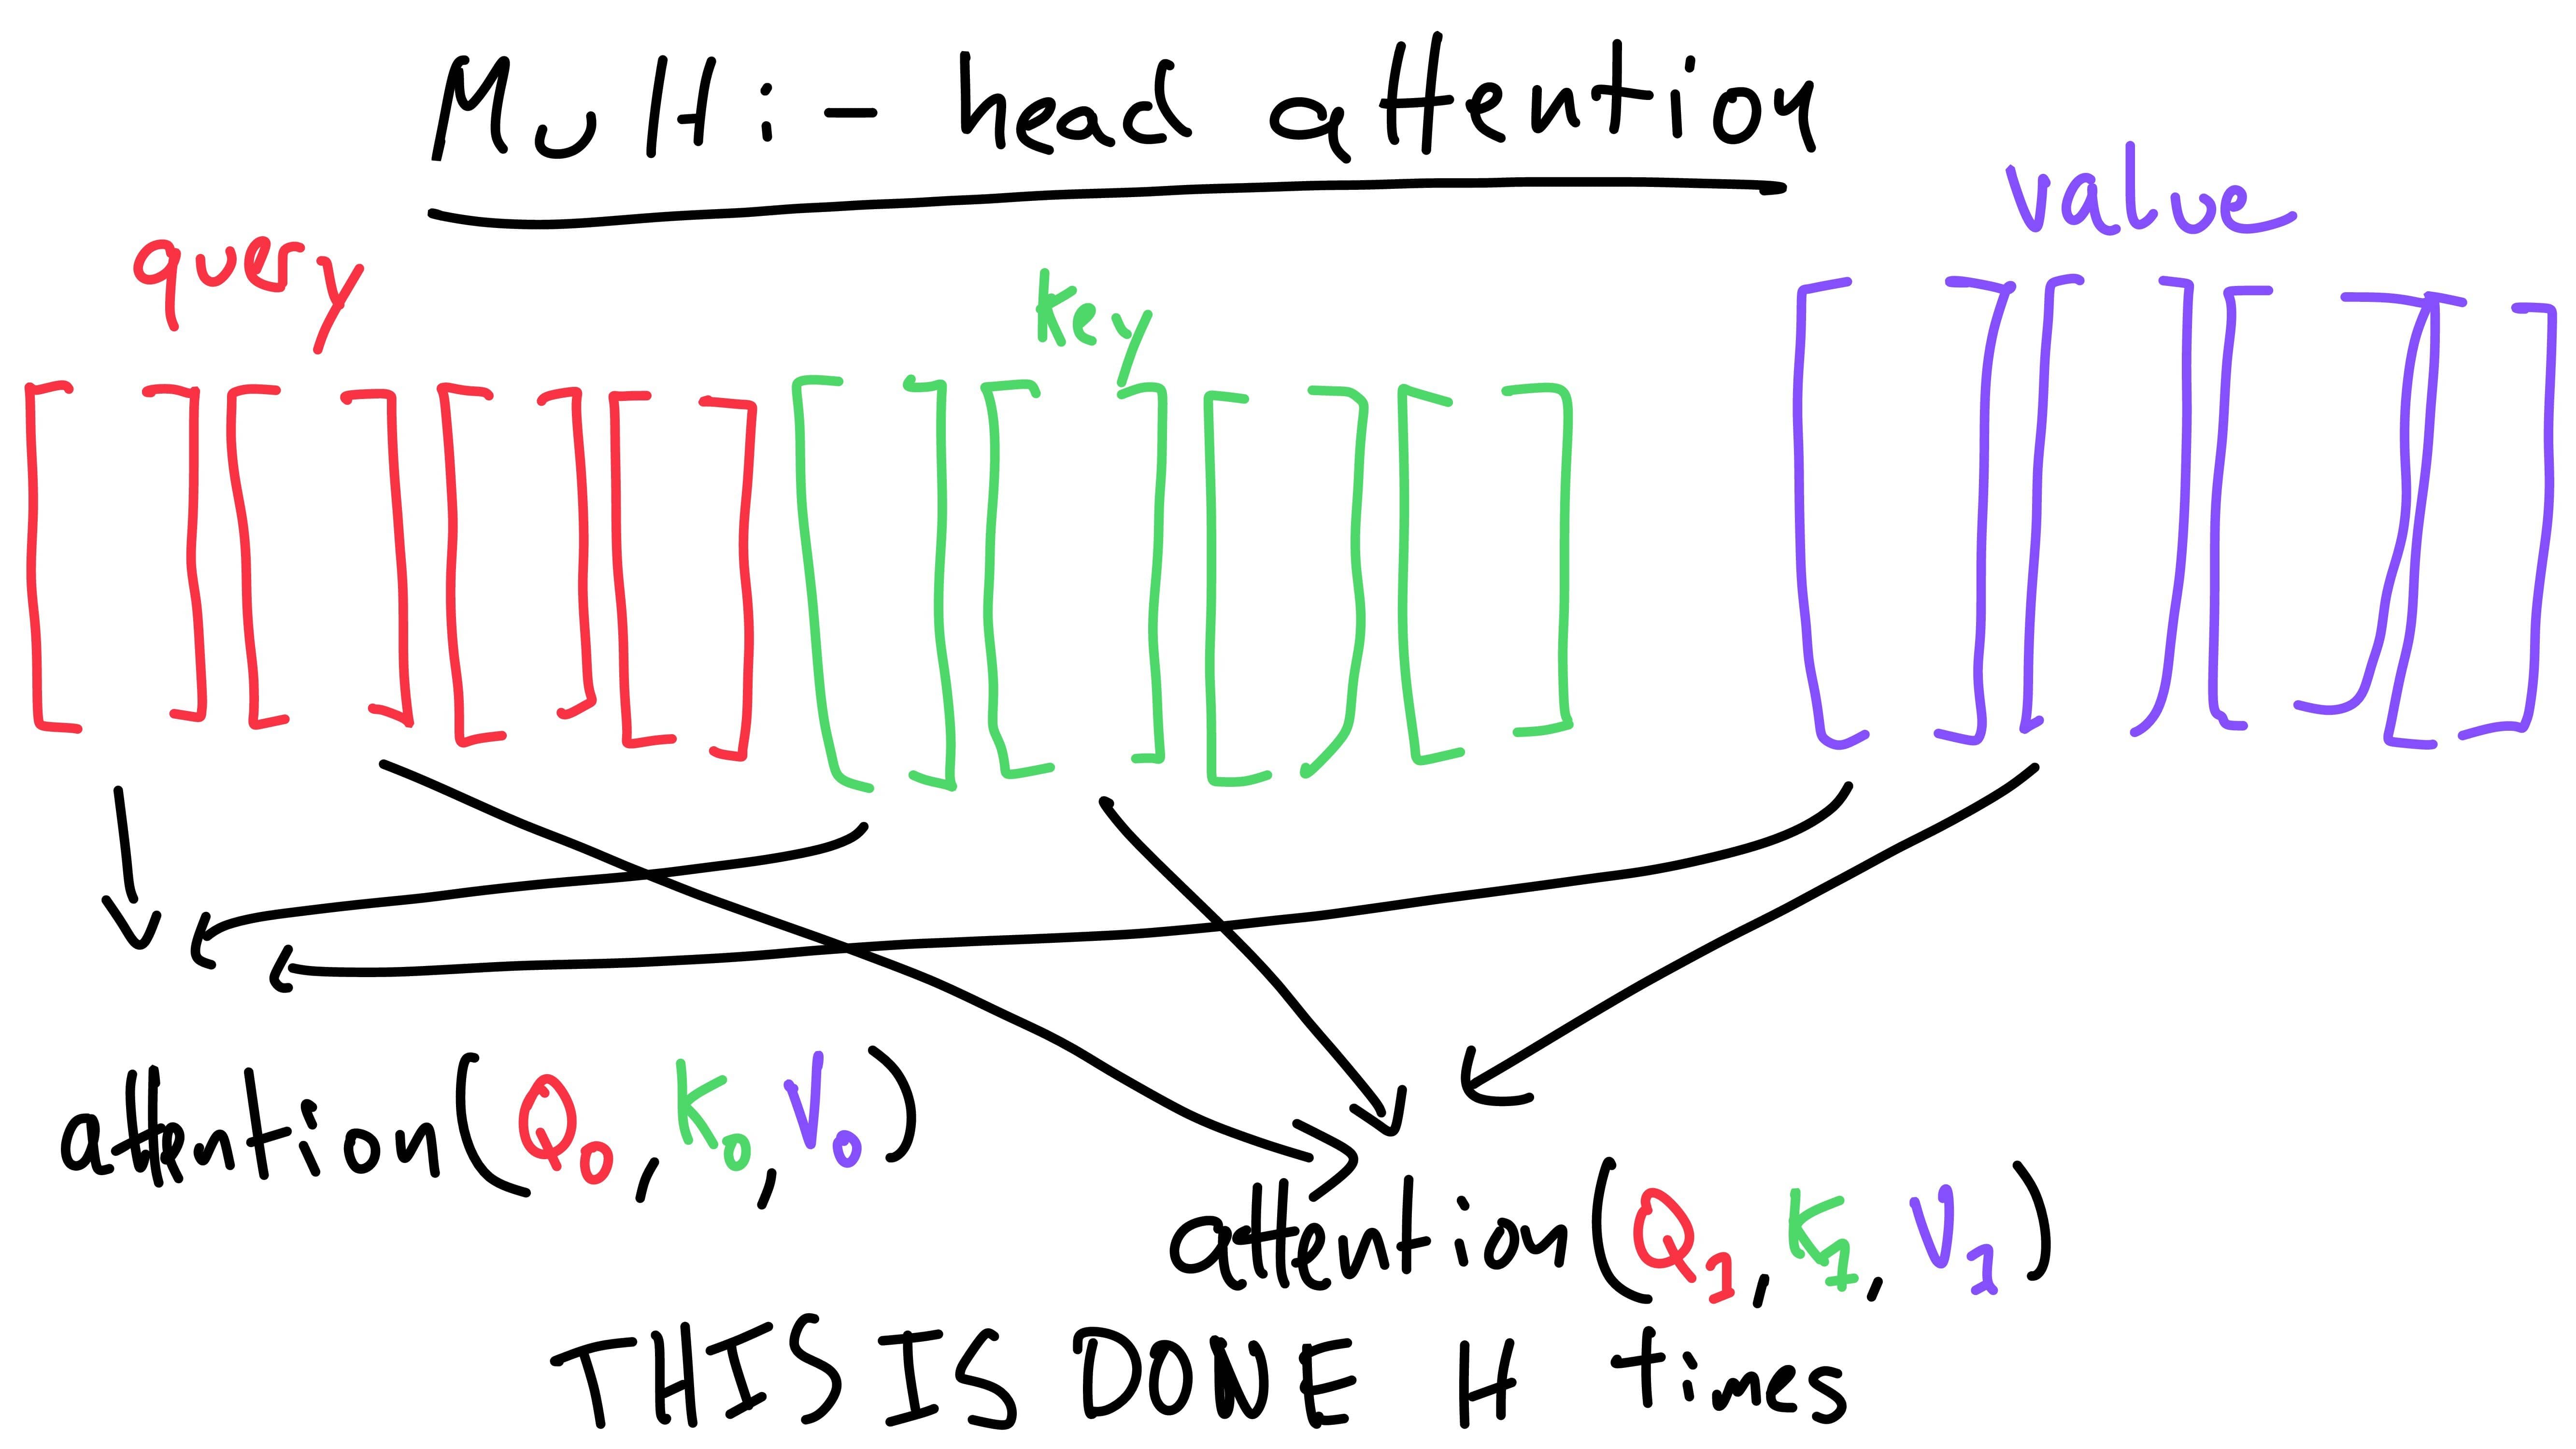 Multi-head attention
query
key
value
attention(Q0, K0, V0)
attention(Q1, K1, V1)
THIS IS DONE H times